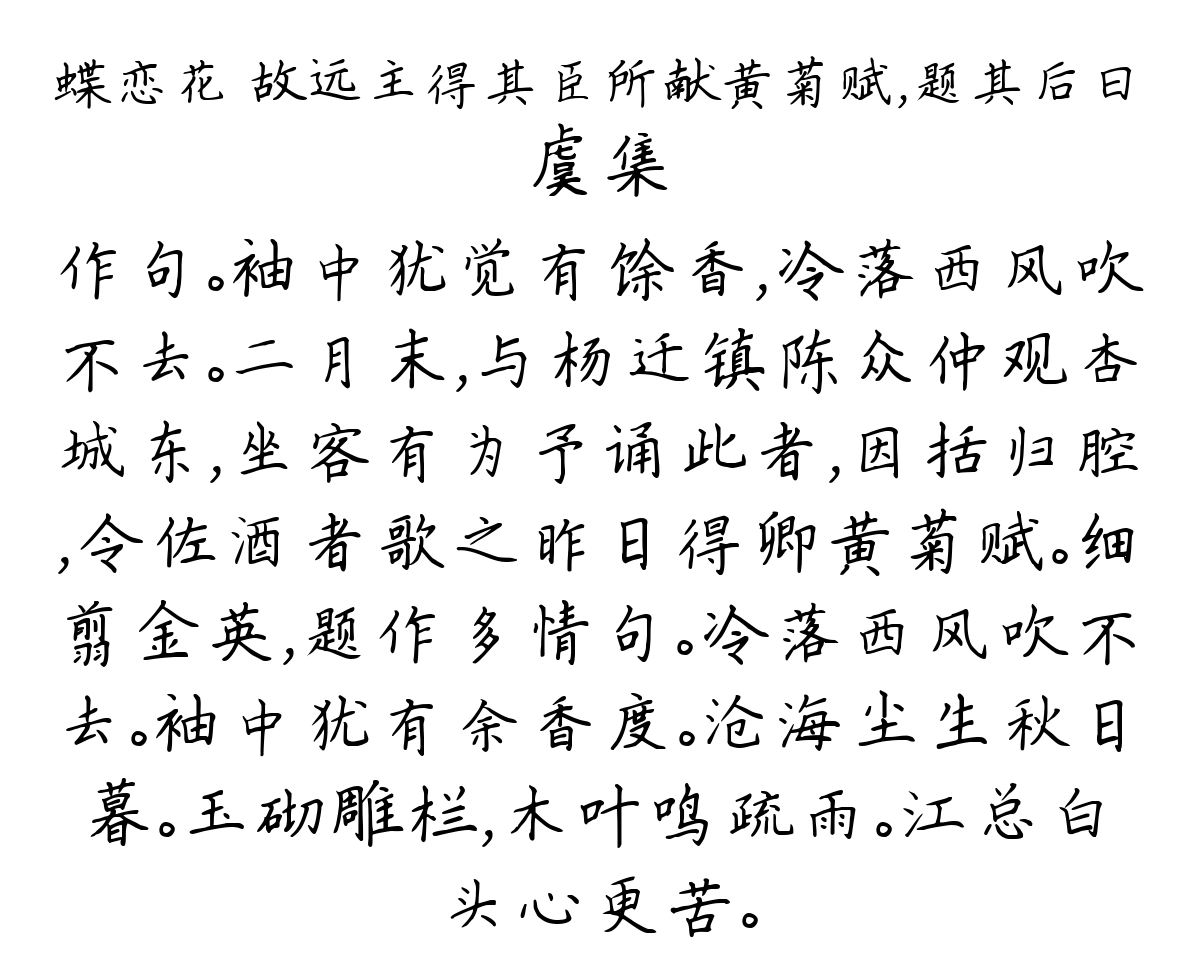 蝶恋花 故远主得其臣所献黄菊赋,题其后曰
虞集
作句。袖中犹觉有馀香,冷落西风吹
不去。二月末,与杨迁镇陈众仲观杏
城东,坐客有为予诵此者,因括归腔
,令佐酒者歌之昨日得卿黄菊赋。细
翦金英,题作多情句。冷落西风吹不
去。袖中犹有余香度。沧海尘生秋日
暮。玉砌雕栏,木叶鸣疏雨。江总白
头心更苦。